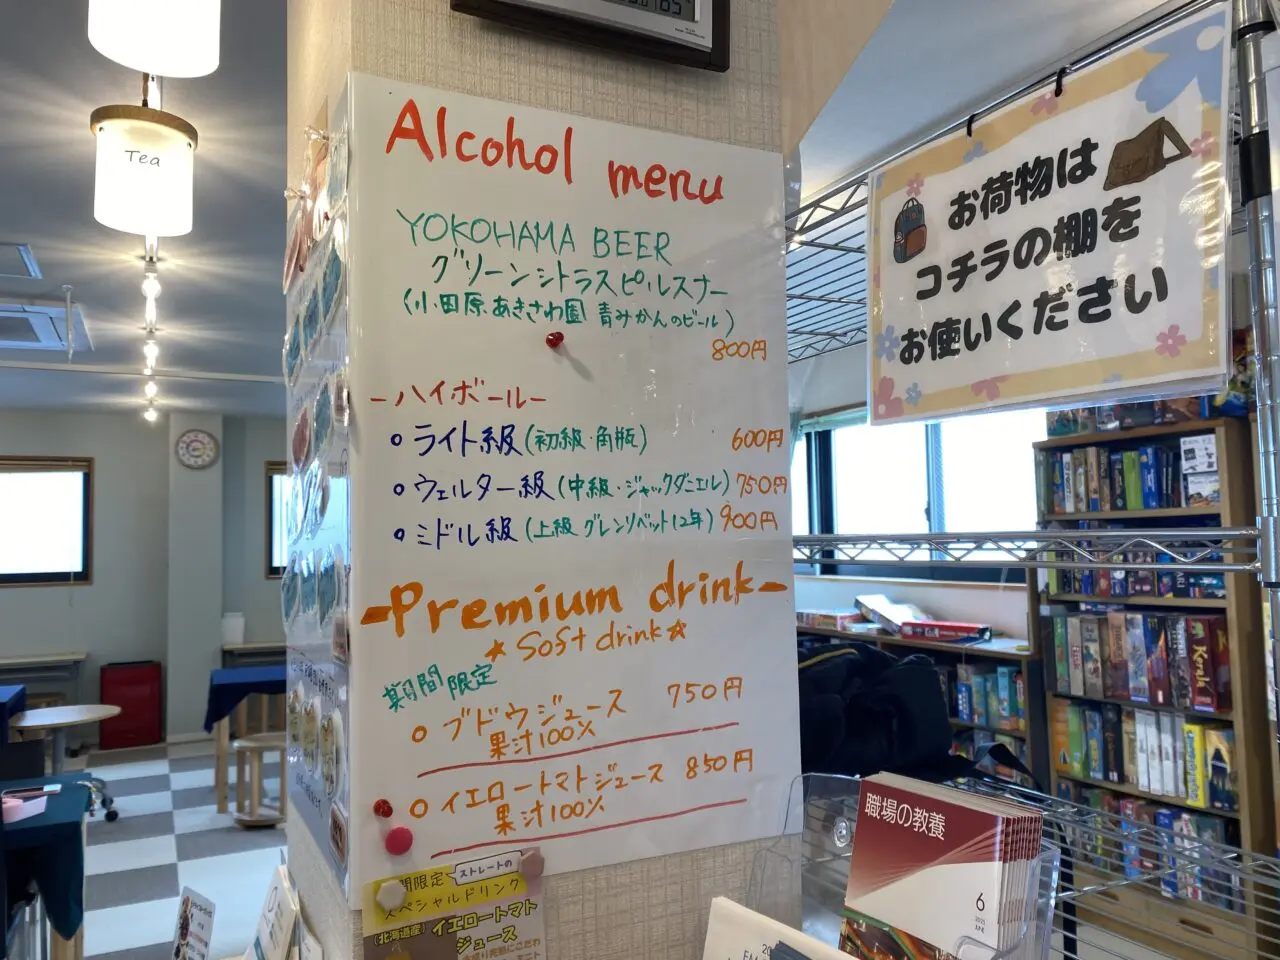 Tea
Alcohol menu
YOKOHAMA BEER
グリーンシトラスピルスナー
(小田原あきさわ園 青みかんのビール)
800円
-ハイボール-
ライト級(初級・角瓶) 600円
ウェルター級(中級・ジャックダニエル) 750円
ミドル級(上級 グレンリベット12年) 900円
-Premium drink-
★Soft drink★
期間限定
ブドウジュース 750円
果汁100%
イエロートマトジュース 850円
果汁100%
間限定 ストレートの
スペシャルドリンク
(北海道産) イエロートマト
ジュース
お荷物は
コチラの棚を
お使いください
職場の教養
6